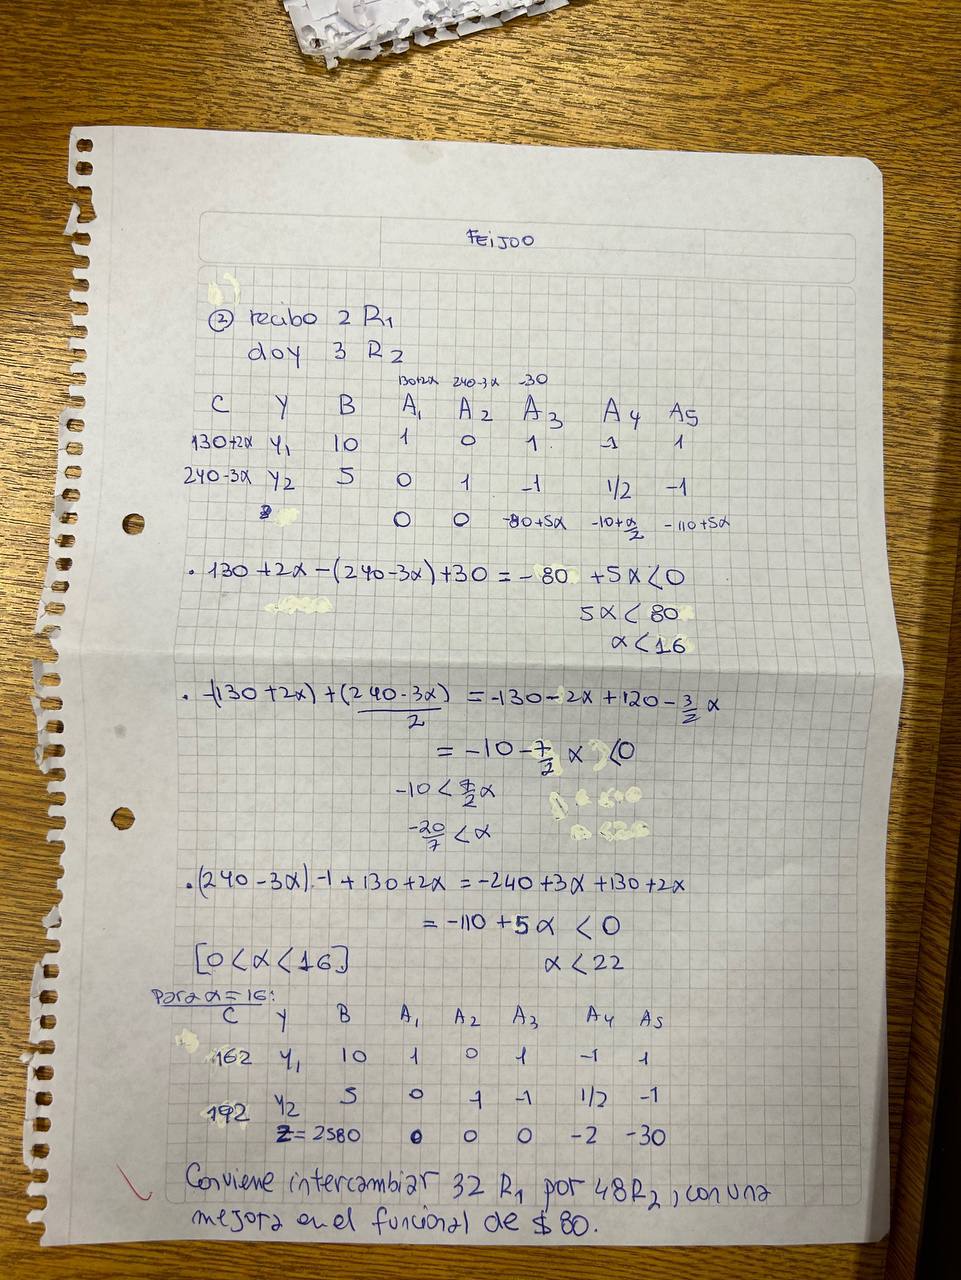 FEIJOO
② recibo 2 R₁
doy 3 R₂
130+2α 240-3α -30
C Y B A₁ A₂ A₃ A₄ A₅
130+2α Y₁ 10 1 0 1 -1 1
240-3α Y₂ 5 0 1 -1 1/2 -1
0 0 -80+5α -10+α/2 -110+5α
. 130+2α-(240-3α)+30 = -80 +5α<0
5α< 80
α<16
. -(130+2α)+(240-3α)/2 = -130-2α+120-3/2 α
= -10-7/2 α <0
-10<7/2 α
-20/7 <α
.(240-3α).-1+130+2α = -240+3α+130+2α
= -110+5α <0
[0<α<16] α<22
Para α=16:
C Y B A₁ A₂ A₃ A₄ A₅
162 Y₁ 10 1 0 1 -1 1
192 Y₂ 5 0 1 -1 1/2 -1
Z=2580 0 0 0 -2 -30
Conviene intercambiar 32 R₁ por 48R₂, con una
mejora en el funcional de $80.